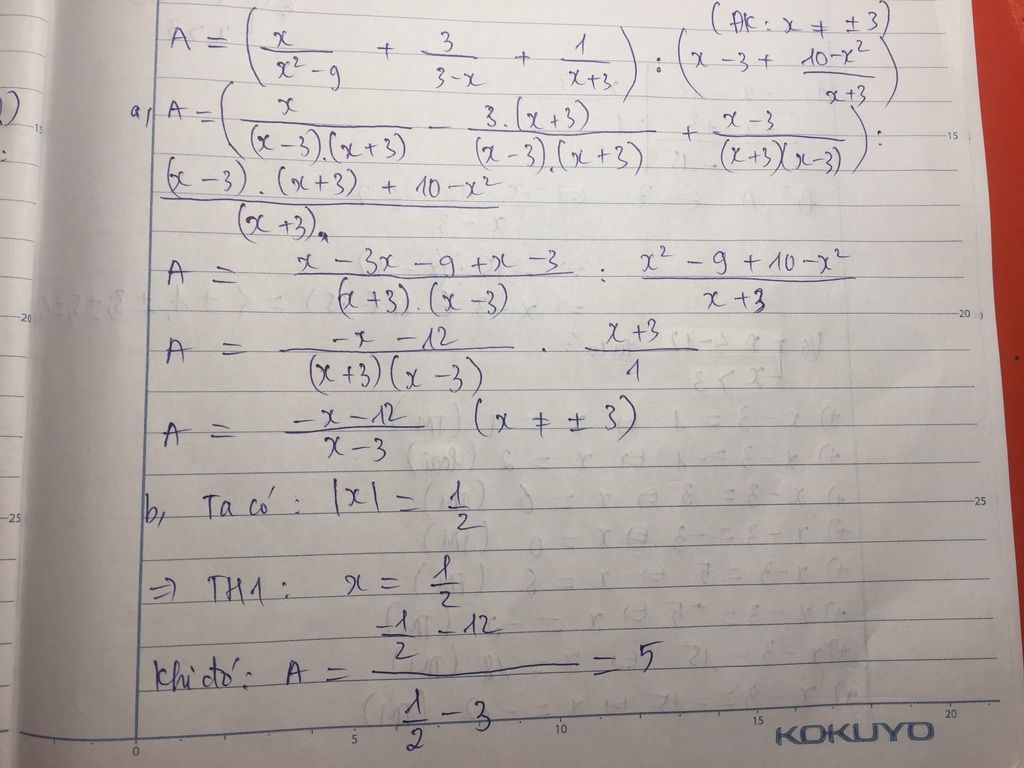 (ĐK: x ≠ ± 3)
A = (x/(x² - 9) + 3/(3-x) + 1/(x+3)) : (x - 3 + (10-x²)/(x+3))
a, A = (x/((x-3).(x+3)) - 3.(x+3)/((x-3).(x+3)) + (x-3)/((x+3)(x-3))) :
((x-3).(x+3) + 10-x²)/(x+3).
A = (x - 3x - 9 + x - 3)/((x+3).(x-3)) : (x² - 9 + 10 - x²)/(x+3)
A = (-x - 12)/((x+3)(x-3)) . (x+3)/1
A = (-x-12)/(x-3) (x ≠ ± 3)
b, Ta có: |x| = 1/2
=> TH1: x = 1/2
Khi đó: A = (-1/2 - 12)/(1/2 - 3) = 5
15
20
25
15
20
25
0
5
10
15
20
KOKUYO